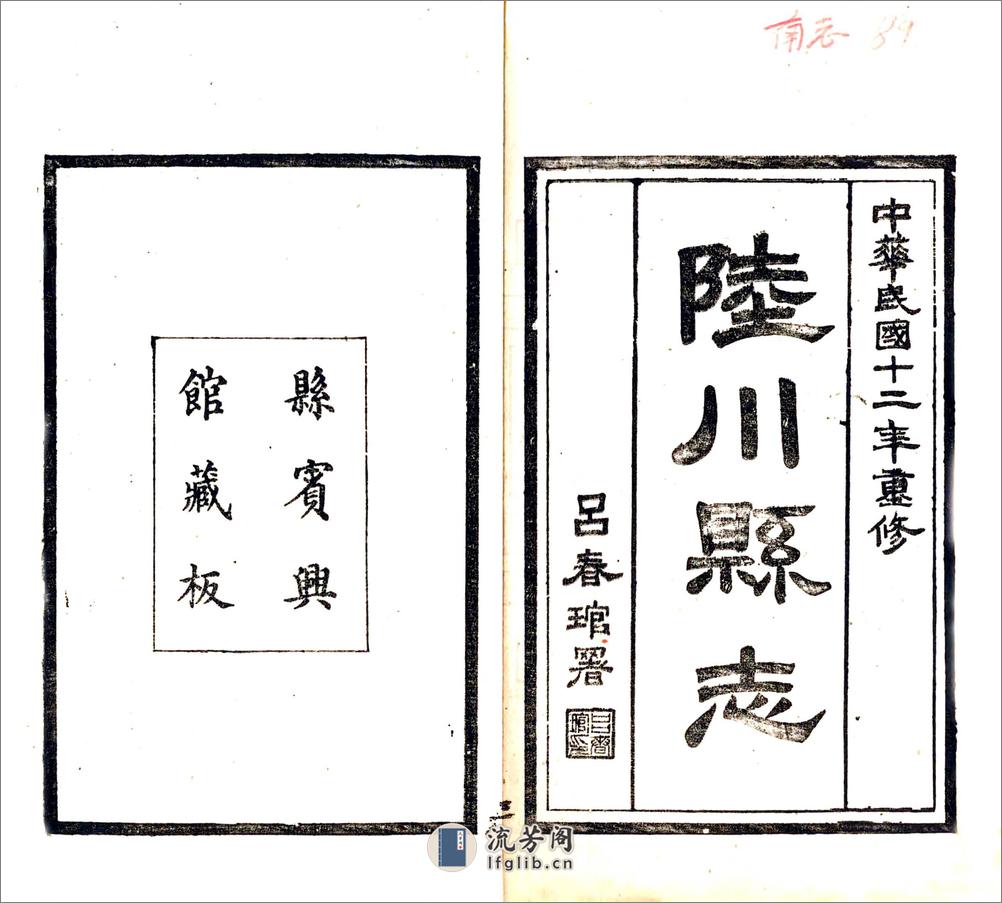 南志 89
中華民國十二年重修
陸川縣志
呂春琯署
呂春琯印
縣賓興
館藏板
流芳阁
lfglib.cn